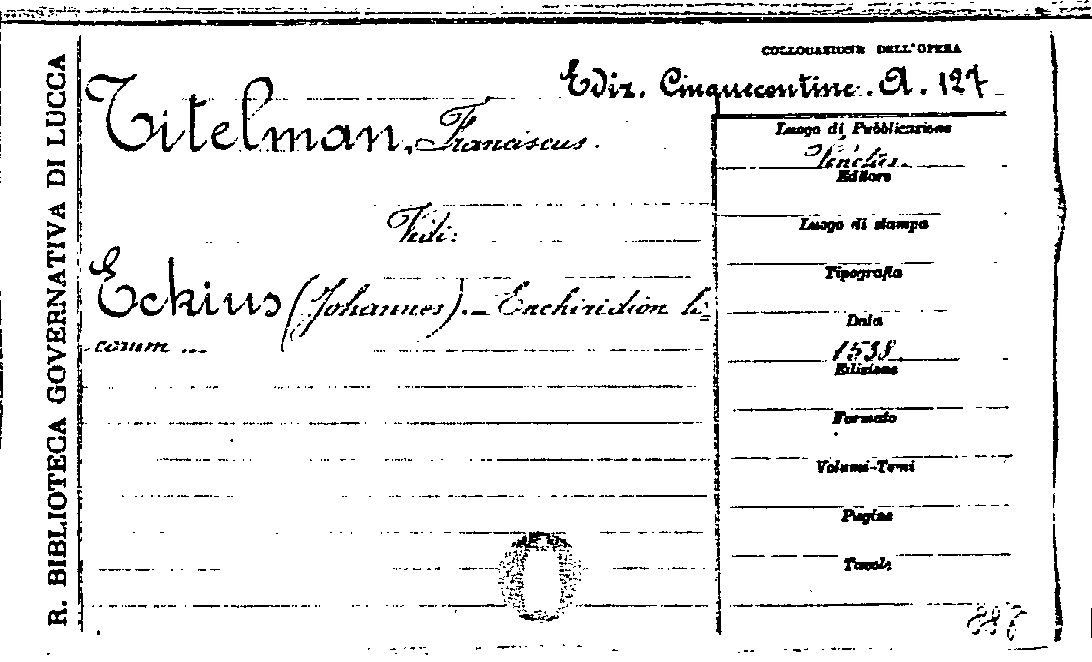 R. BIBLIOTECA GOVERNATIVA DI LUCCA
COLLOCAZIONE DELL'OPERA
Ediz. Cinquecentine. A. 127
Titelman, Franciscus.
Vidi:
Eckius (Johannes). - Enchiridion lo=
corum ...
Luogo di Pubblicazione
Editore
Luogo di stampa
Tipografia
Data
1538.
Edizione
Formato
Volumi-Tomi
Pagine
Tavole